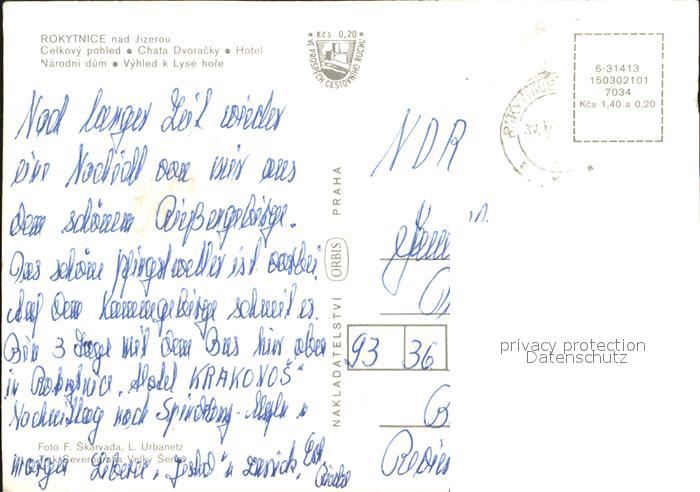 ROKYTNICE nad Jizerou
Celkový pohled • Chata Dvoračky • Hotel
Národní dům • Výhled k Lysé hoře
• Kčs 0,20 •
VE PROSPĚCH CESTOVNÍHO RUCHU
6-31413
150302101
7034
Kčs 1,40 a 0,20
Nach langer Zeit wieder
eine Nachricht von mir aus
dem schönen Riesengebirge.
Das schöne Pfingstwetter ist vorbei
Auf dem Kammgebirge schneit es.
Bin 3 Tage mit dem Bus hier oben
in Rokytnice, Hotel KRAKONOŠ"
Nachmittag nach Spindlermühle
morgen Liberec,
NDR
93 36
NAKLADATELSTVÍ ORBIS PRAHA
Foto F. Škarvada, L. Urbanetz
Severografia Velký Šenov
privacy protection
Datenschutz